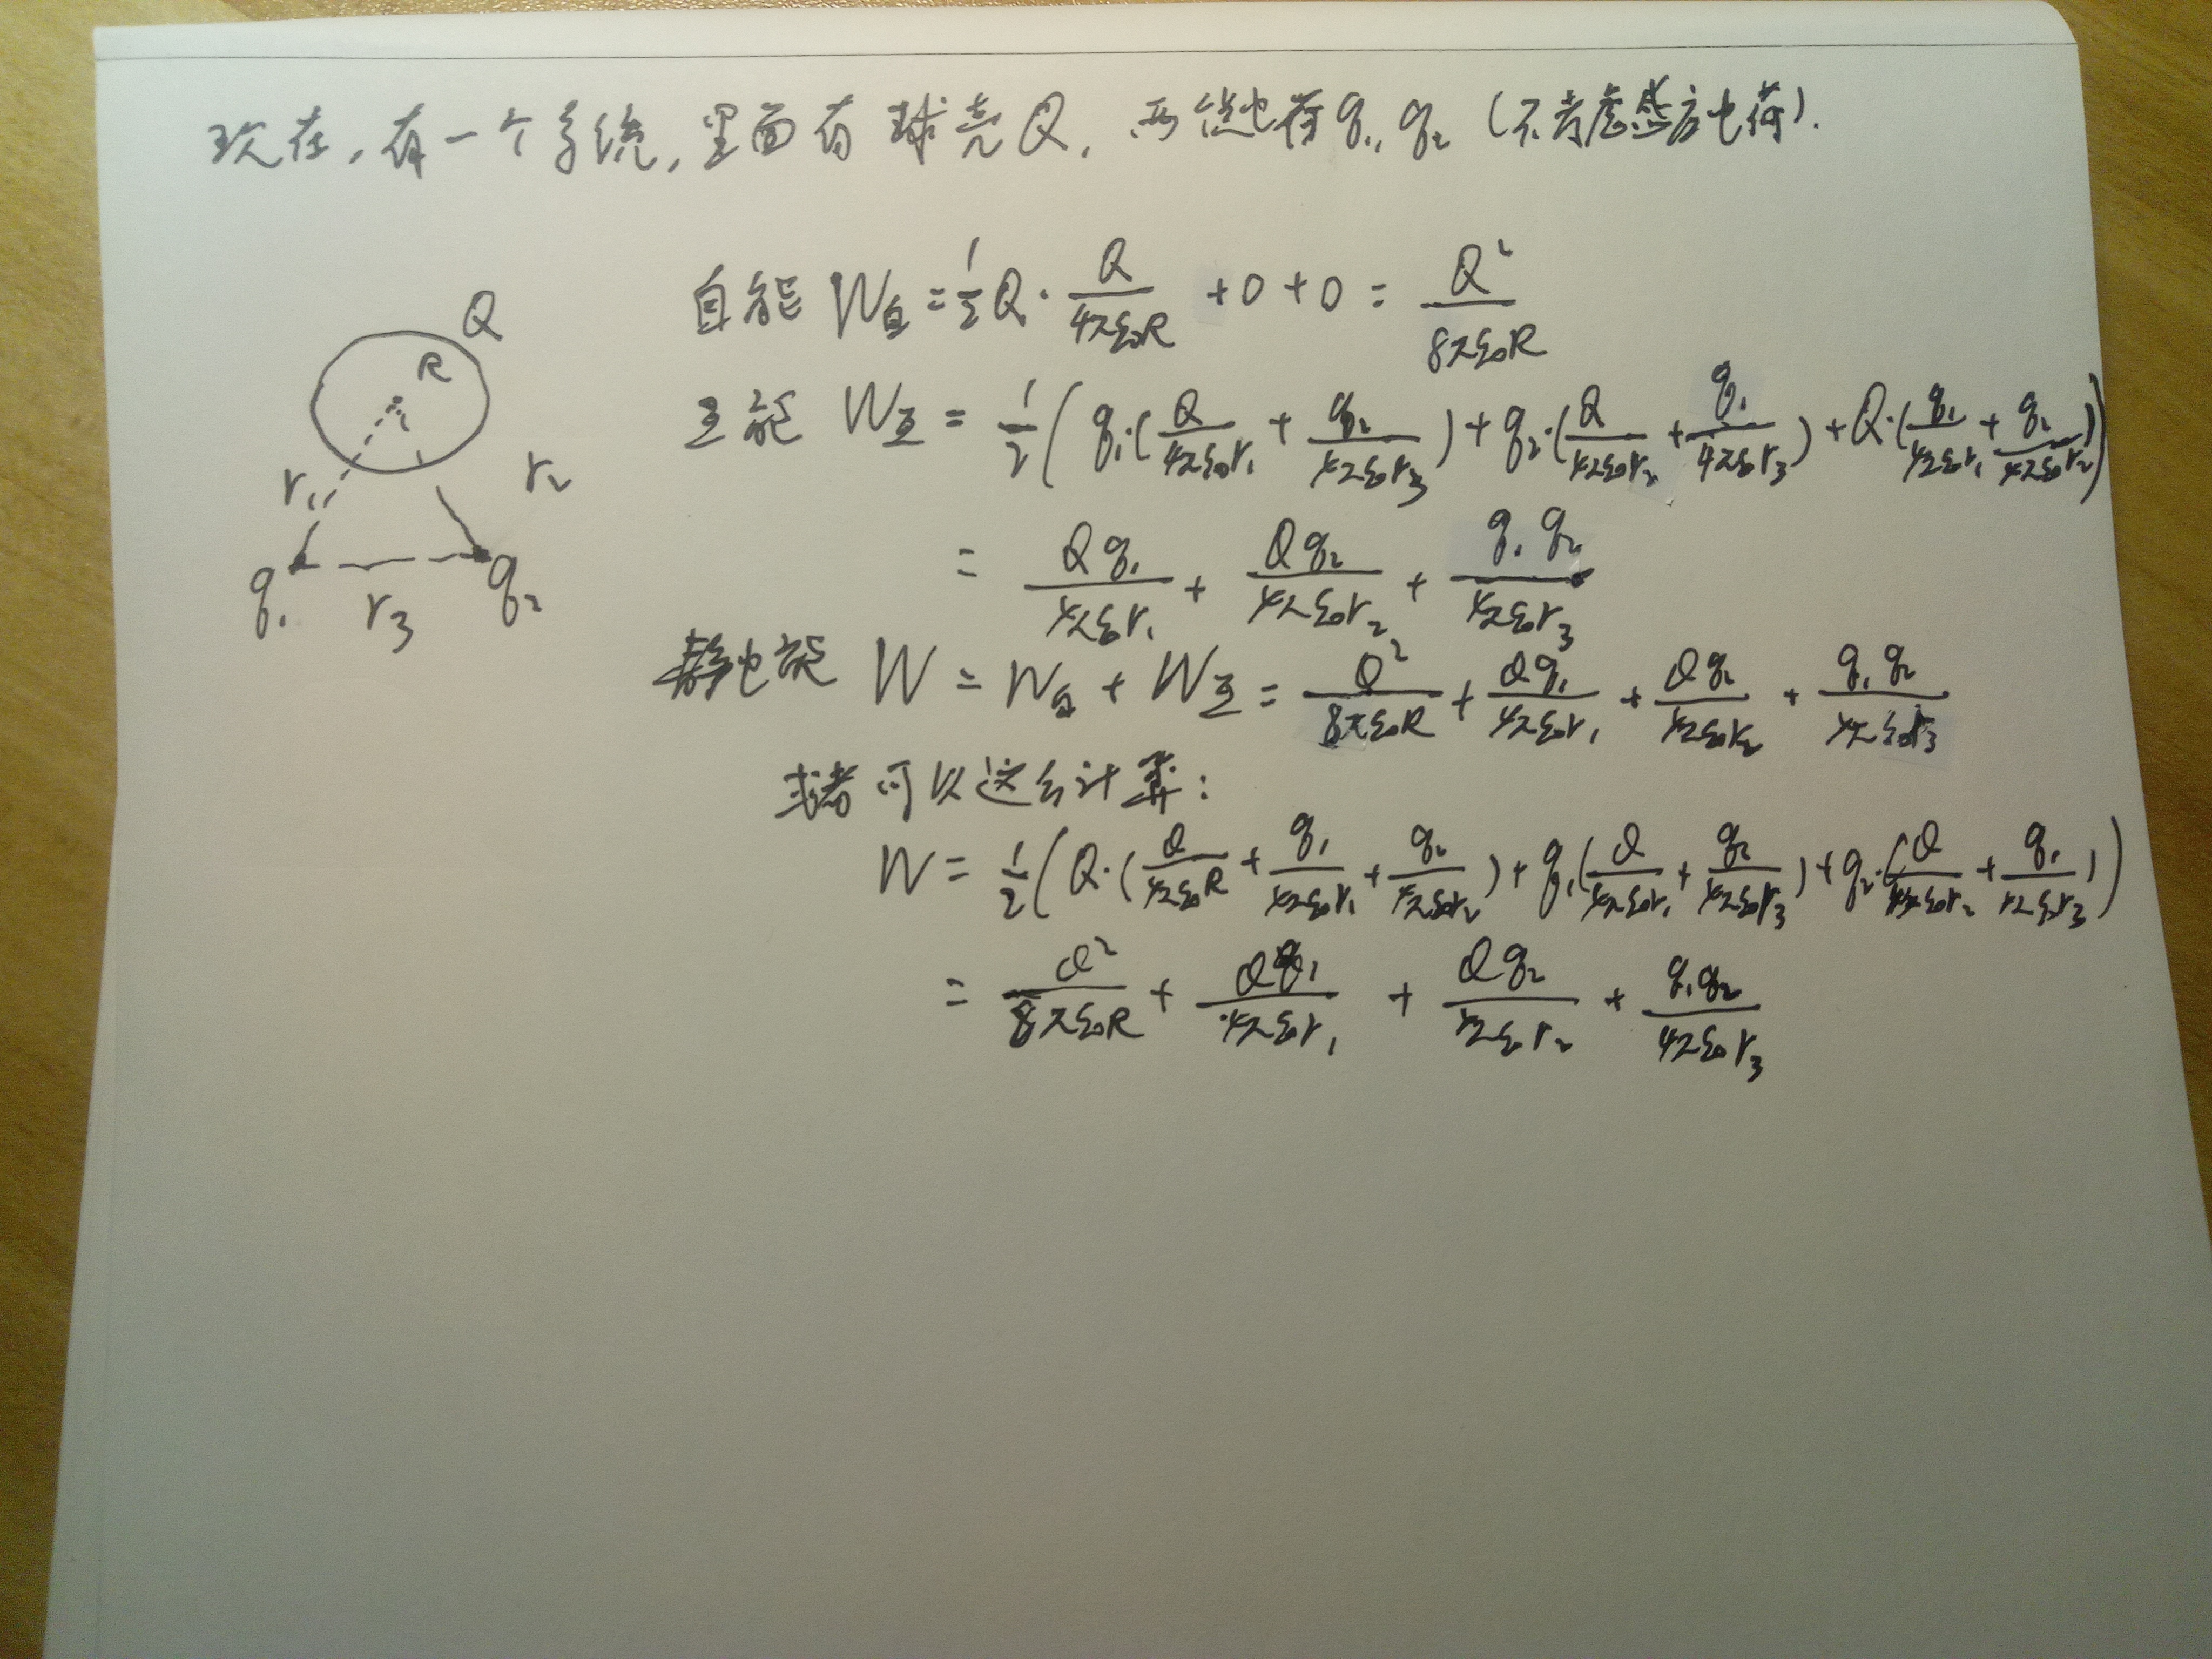 现在,有一个系统,里面有球壳Q,两点电荷q₁,q₂(不考虑感应电荷).
Q
R
r₁
r₂
q₁
r₃
q₂
自能 W自 = 1/2 Q · Q/(4πε₀R) + 0 + 0 = Q²/(8πε₀R)
互能 W互 = 1/2 ( q₁·( Q/(4πε₀r₁) + q₂/(4πε₀r₃) ) + q₂·( Q/(4πε₀r₂) + q₁/(4πε₀r₃) ) + Q·( q₁/(4πε₀r₁) + q₂/(4πε₀r₂) ) )
= Qq₁/(4πε₀r₁) + Qq₂/(4πε₀r₂) + q₁q₂/(4πε₀r₃)
静电能 W = W自 + W互 = Q²/(8πε₀R) + Qq₁/(4πε₀r₁) + Qq₂/(4πε₀r₂) + q₁q₂/(4πε₀r₃)
或者可以这么计算:
W = 1/2 ( Q·( Q/(4πε₀R) + q₁/(4πε₀r₁) + q₂/(4πε₀r₂) ) + q₁( Q/(4πε₀r₁) + q₂/(4πε₀r₃) ) + q₂·( Q/(4πε₀r₂) + q₁/(4πε₀r₃) ) )
= Q²/(8πε₀R) + Qq₁/(4πε₀r₁) + Qq₂/(4πε₀r₂) + q₁q₂/(4πε₀r₃)